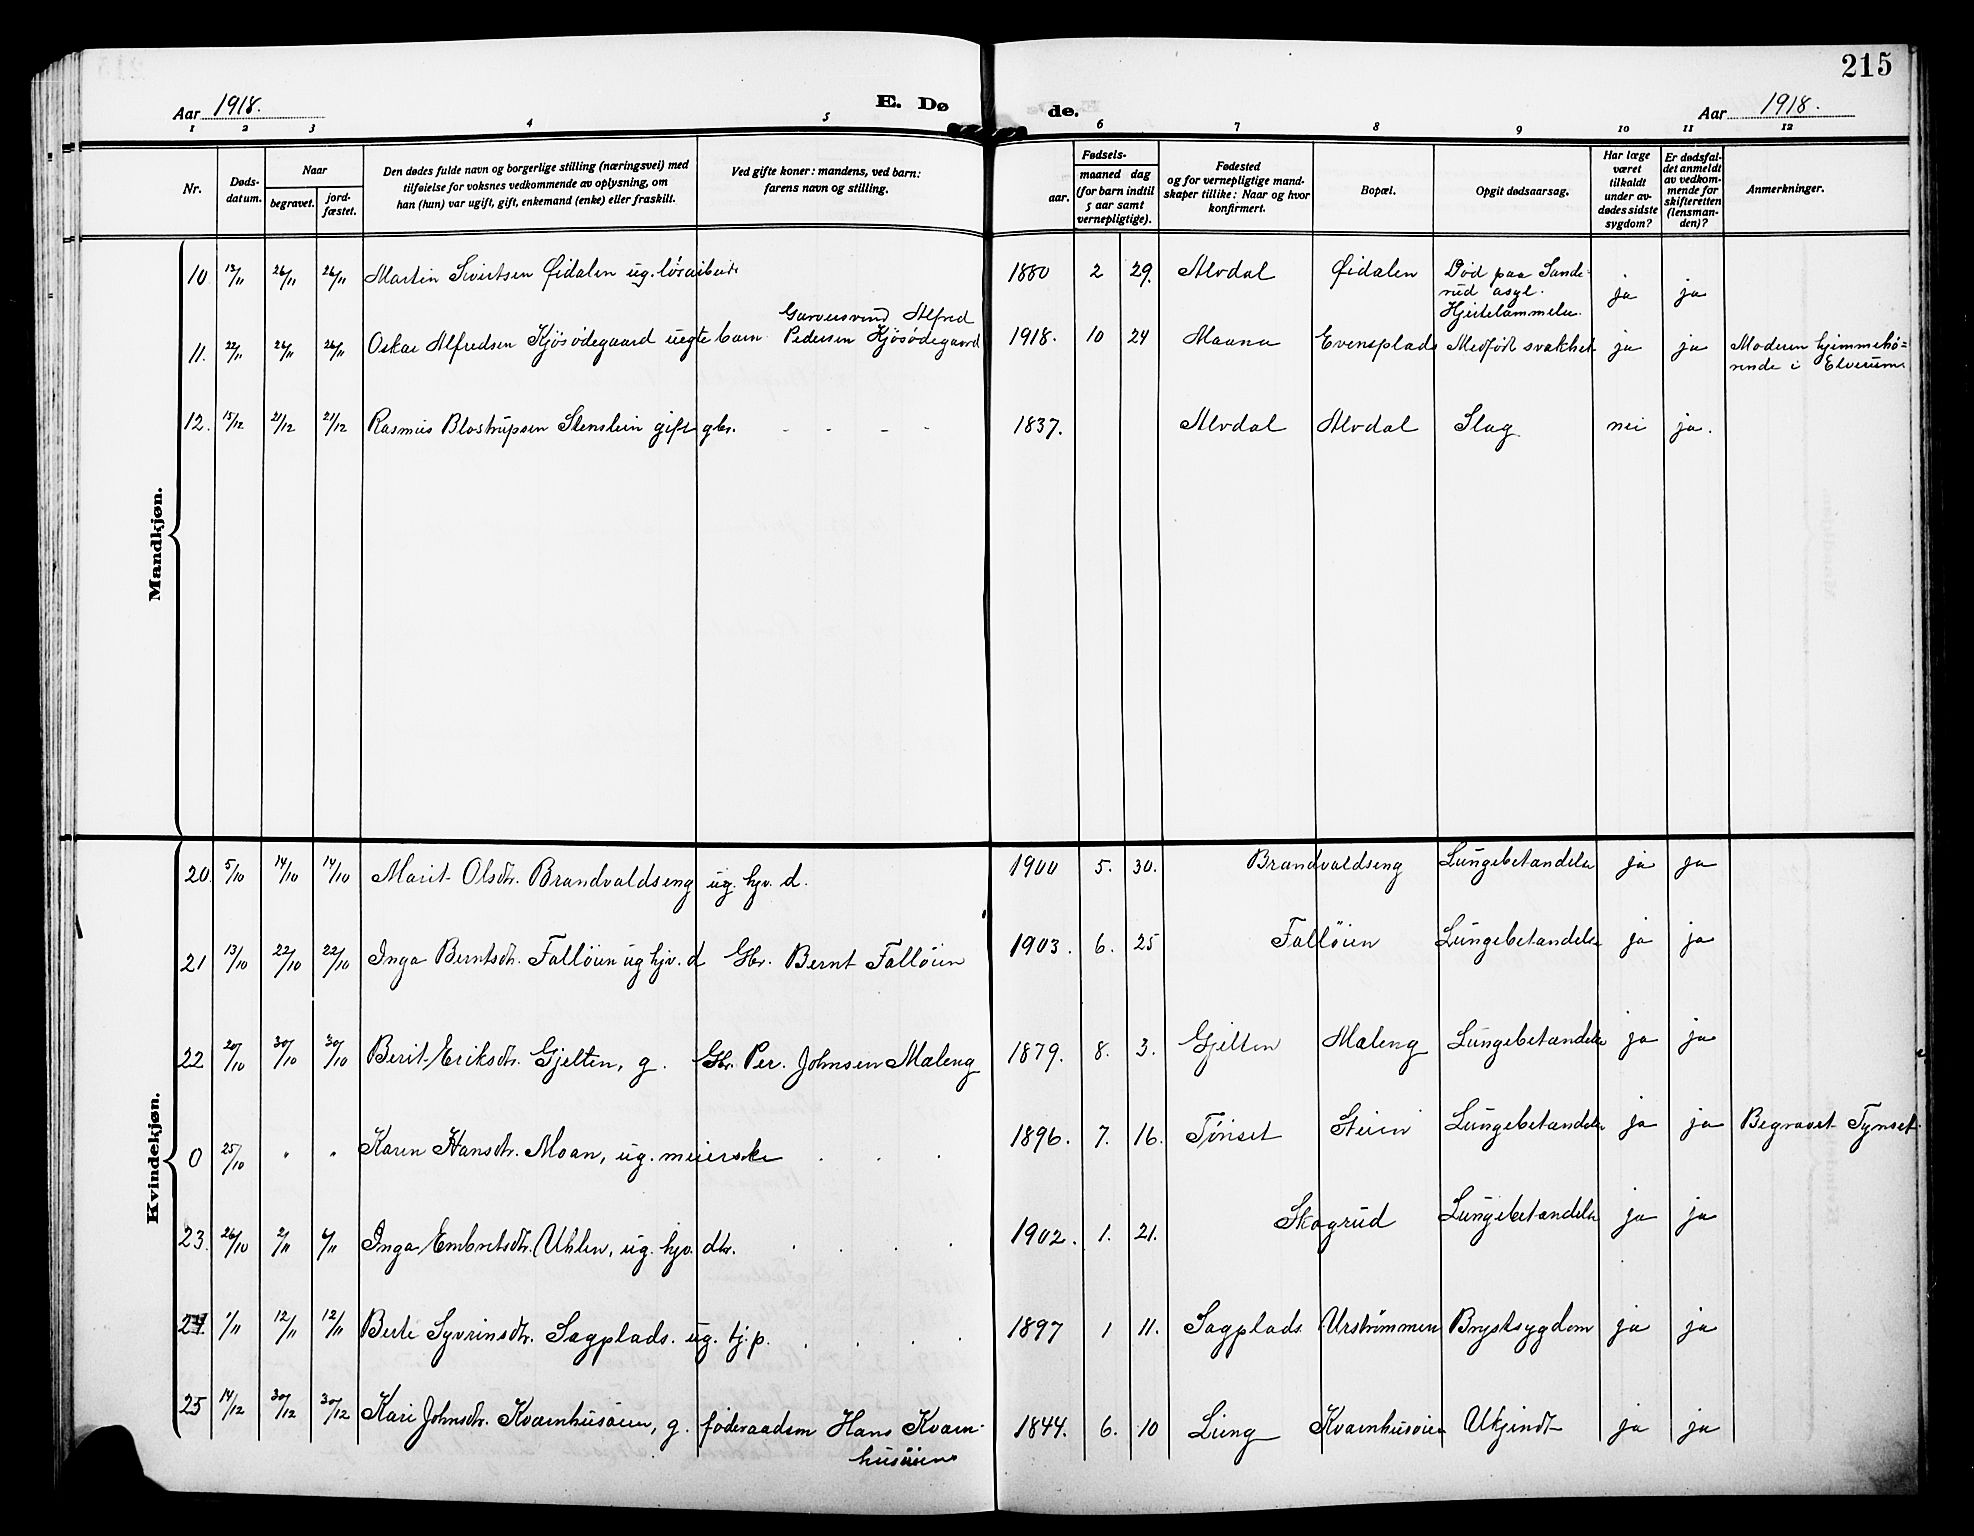 215
Aar 1918. E. Dø de. Aar 1918.
1 2 3 4 5 6 7 8 9 10 11 12
Nr. Døds-datum. Naar begravet. jord-fæstet. Den dødes fulde navn og borgerlige stilling (næringsvei) med tilføielse for voksnes vedkommende av oplysning, om han (hun) var ugift, gift, enkemand (enke) eller fraskilt. Ved gifte koner: mandens, ved barn: farens navn og stilling. Fødsels- aar. maaned dag (for barn indtil 5 aar samt vernepligtige). Fødested og for vernepligtige mandskaper tillike: Naar og hvor konfirmert. Bopæl. Opgit dødsaarsag. Har læge været tilkaldt under avdødes sidste sygdom? Er dødsfaldet anmeldt av vedkommende for skifteretten (lensmanden)? Anmerkninger.
Mandkjøn.
10 13/11 26/11 26/11 Martin Sivertsen Øidalen ug. løsarbeide 1880 2 29. Alvdal Øidalen Død paa Sanderud asyl. Hjertelammelse. ja ja
11. 22/11 26/11 26/11 Oskar Alfredsen Kjøsødegaard uegte barn Garversvend Alfred Pedersen Kjøsødegaard 1918. 10 24 Moana Evensplads Medfødt svakhet ja ja Moderen hjemmehø=rende i Elverum.
12. 15/12 21/12 21/12 Rasmus Blostrupsen Stenslein gift gbr. - - - - 1837. Alvdal Alvdal Slag nei ja.
Kvindekjøn.
20. 5/10 14/10 14/10 Marit Olsdtr. Brandvaldseng ug. hjv. d. 1900 5. 30. Brandvaldseng Lungebetændelse ja ja
21 13/10 22/10 22/10 Inga Berntsdtr. Falløien ug hjv. d Gbr. Bernt Falløien 1903. 6. 25 Falløien Lungebetændelse ja ja
22 20/10 30/10 30/10 Berit Eriksdtr. Gjelten, g. Gbr. Per. Johnsen Maleng 1879. 8. 3. Gjelten Maleng Lungebetændelse ja ja
0 25/10 " " Karen Hansdtr. Moan, ug. meierske . . . 1896. 7. 16. Tønset Steien Lungebetændelse ja ja Begravet Tynset.
23. 26/10 2/11 6/11 Inga Embretsdtr. Uhlen, ug. hjv. dtr. . . . 1902. 1. 21. Skogrud Lungebetændelse ja ja
24. 1/11 12/11 12/11 Berte Syvrinsdtr. Sagplads. ug. tj. p. . . . . 1897 1 11. Sagplads. Urstrømmen Brystsygdom ja ja
25 14/12 30/12 30/12 Kari Johnsdtr. Kvarnhusøien, g. føderaadsm Hans Kvarn-husøien 1844. 6. 10 Lung Kvarnhusøien Ukjendt ja ja